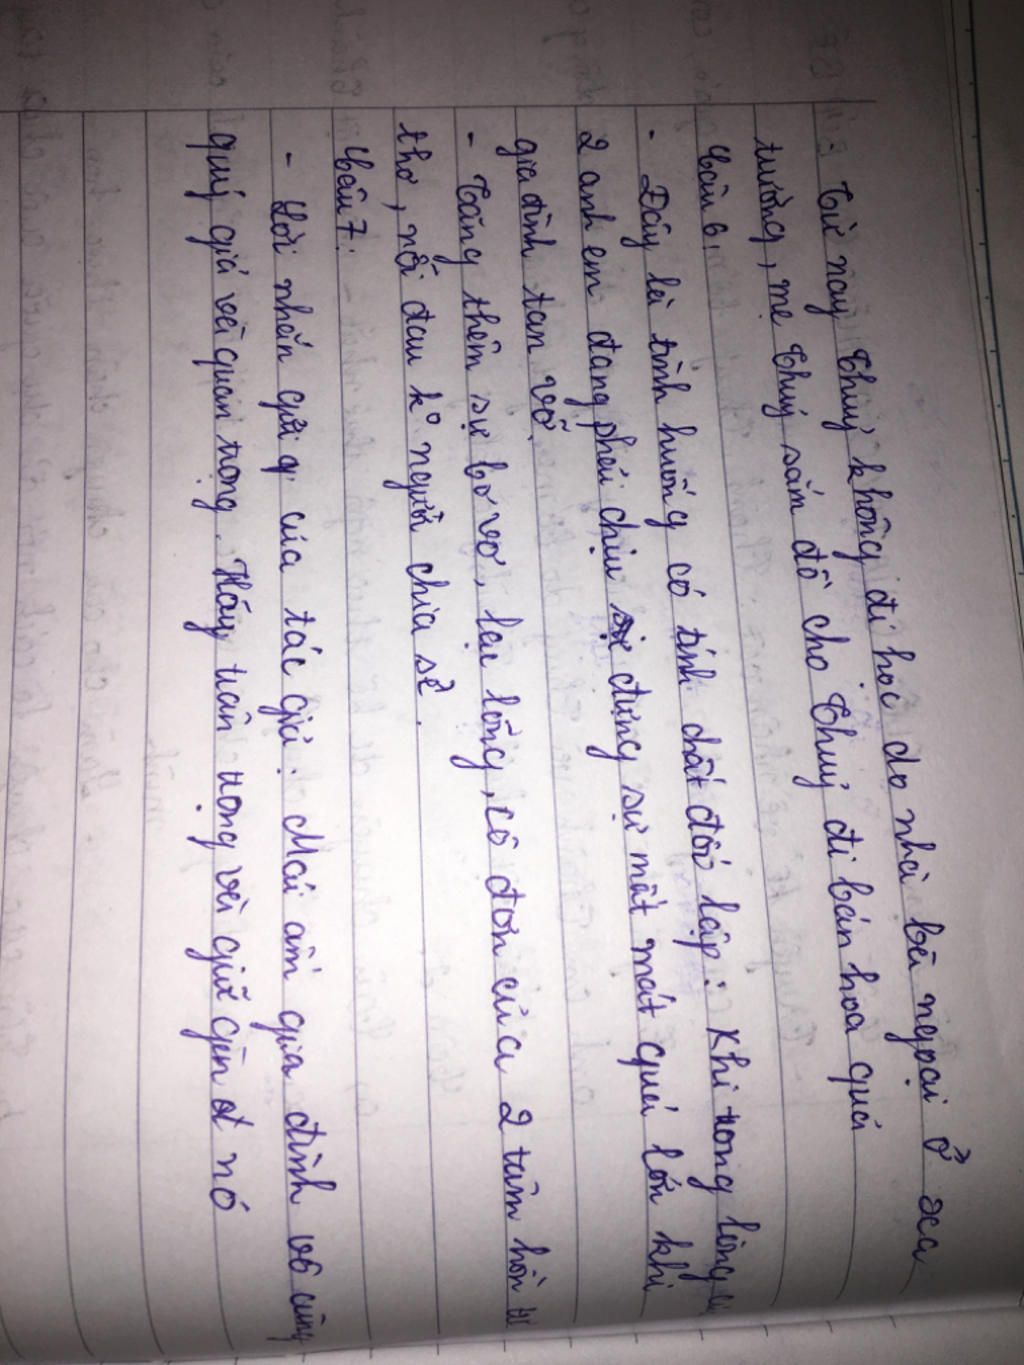 - Từ nay Thuỷ không đi học do nhà bà ngoại ở xa
trường, mẹ Thuỷ sắm đồ cho Thuỷ đi bán hoa quả
Câu 6.
- Đây là tình huống có tính chất đối lập: Khi trong lòng
2 anh em đang phải chịu đựng sự mất mát quá lớn khi
gia đình tan vỡ.
- Tăng thêm sự bơ vơ, lạc lõng, cô đơn của 2 tâm hồn
thơ, nỗi đau ko người chia sẻ.
Câu 7:
- Lời nhắn gửi của tác giả: Mái ấm gia đình vô cùng
quý giá và quan trọng. Hãy trân trọng và giữ gìn nó